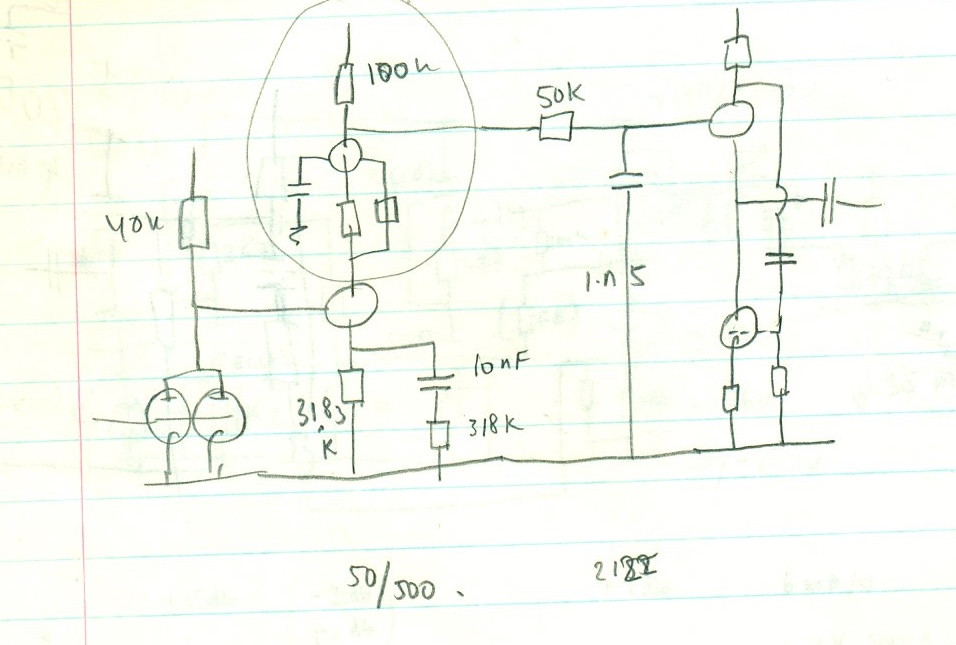 100k
50K
40k
1.n5
10nF
3183
K
318K
50/500.